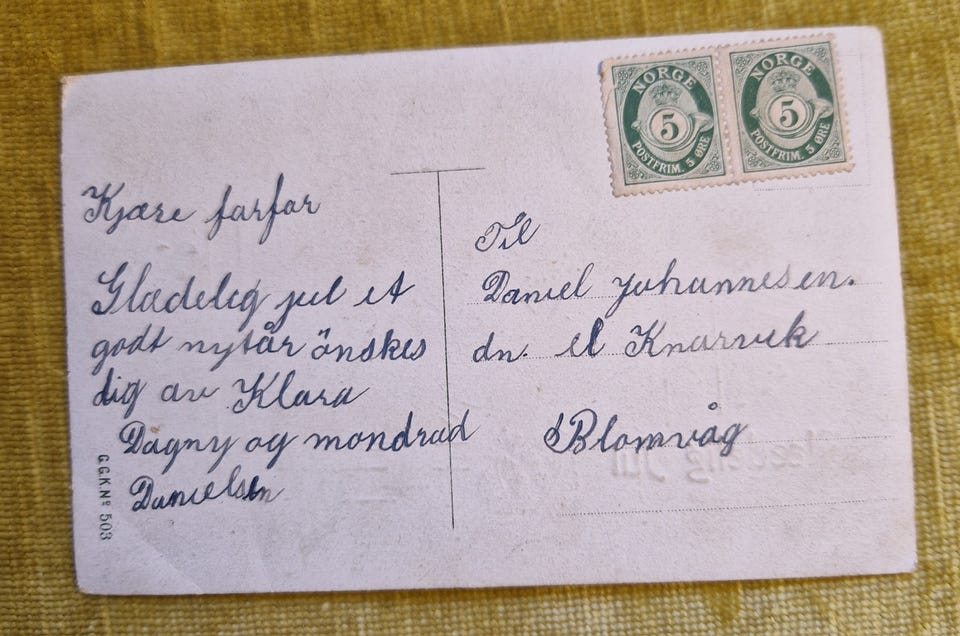 NORGE
5
POSTFRIM. 5 ØRE
NORGE
5
POSTFRIM. 5 ØRE
Kjære farfar
Glædelig jul et
godt nytår önskes
dig av Klara
Dagny og mondrad
Danielsen
G.G.K.Nº 503
Til
Daniel Johannesen.
dn. el Knarvik
Blomvåg